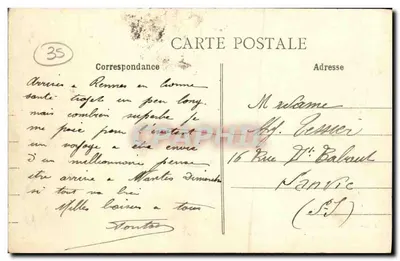 35
CARTE POSTALE
Correspondance
Adresse
Arrivés a Rennes en bonne
santé trajet un peu long
mais combien superbe je
me paie pour l'instant
un voyage a etre envié
d'un millionnaire pense
etre arrivé a Nantes Dimanche
si tout va bien
Milles baisers a tous
Madame
Tessier
16 Rue
Sanvic
(S.I)